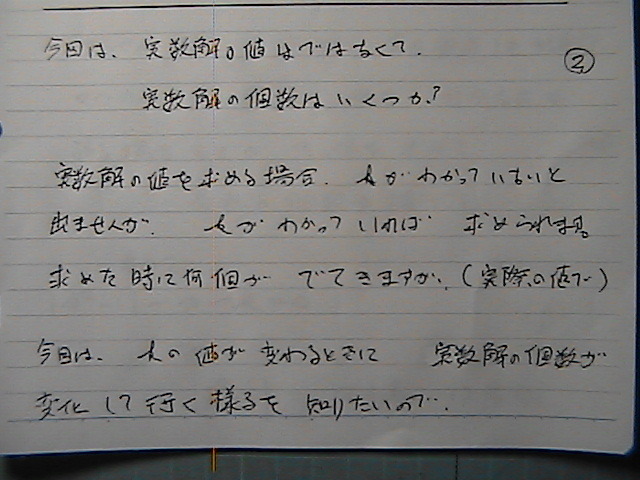 今回は、実数解の値はではなくて、
②
実数解の個数はいくつか?
実数解の値を求める場合、kがわかっていないと
出ませんが、kがわかっていれば 求められます。
求めた時に何個が でてきますが、(実際の値で)
今回は、kの値が変わるときに 実数解の個数が
変化して行く様子を 知りたいので、